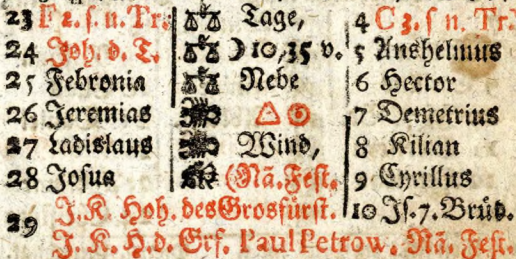 23 F 2. ſ n. Tr. Tage, 4 C 3. ſ n. Tr.
24 Joh. d. T. ☽ 10, 35 v. 5 Anshelmus
25 Febronia Nebe 6 Hector
26 Jeremias △ 7 Demetrius
27 Ladislaus Wind, 8 Kilian
28 Joſua (Nã. Feſt. 9 Cyrillus
29 J. K. Hoh. des Grosfürſt. 10 Jſ. 7. Brüd.
J. K. H. d. Erſ. Paul Petrow. Nã. Feſt.